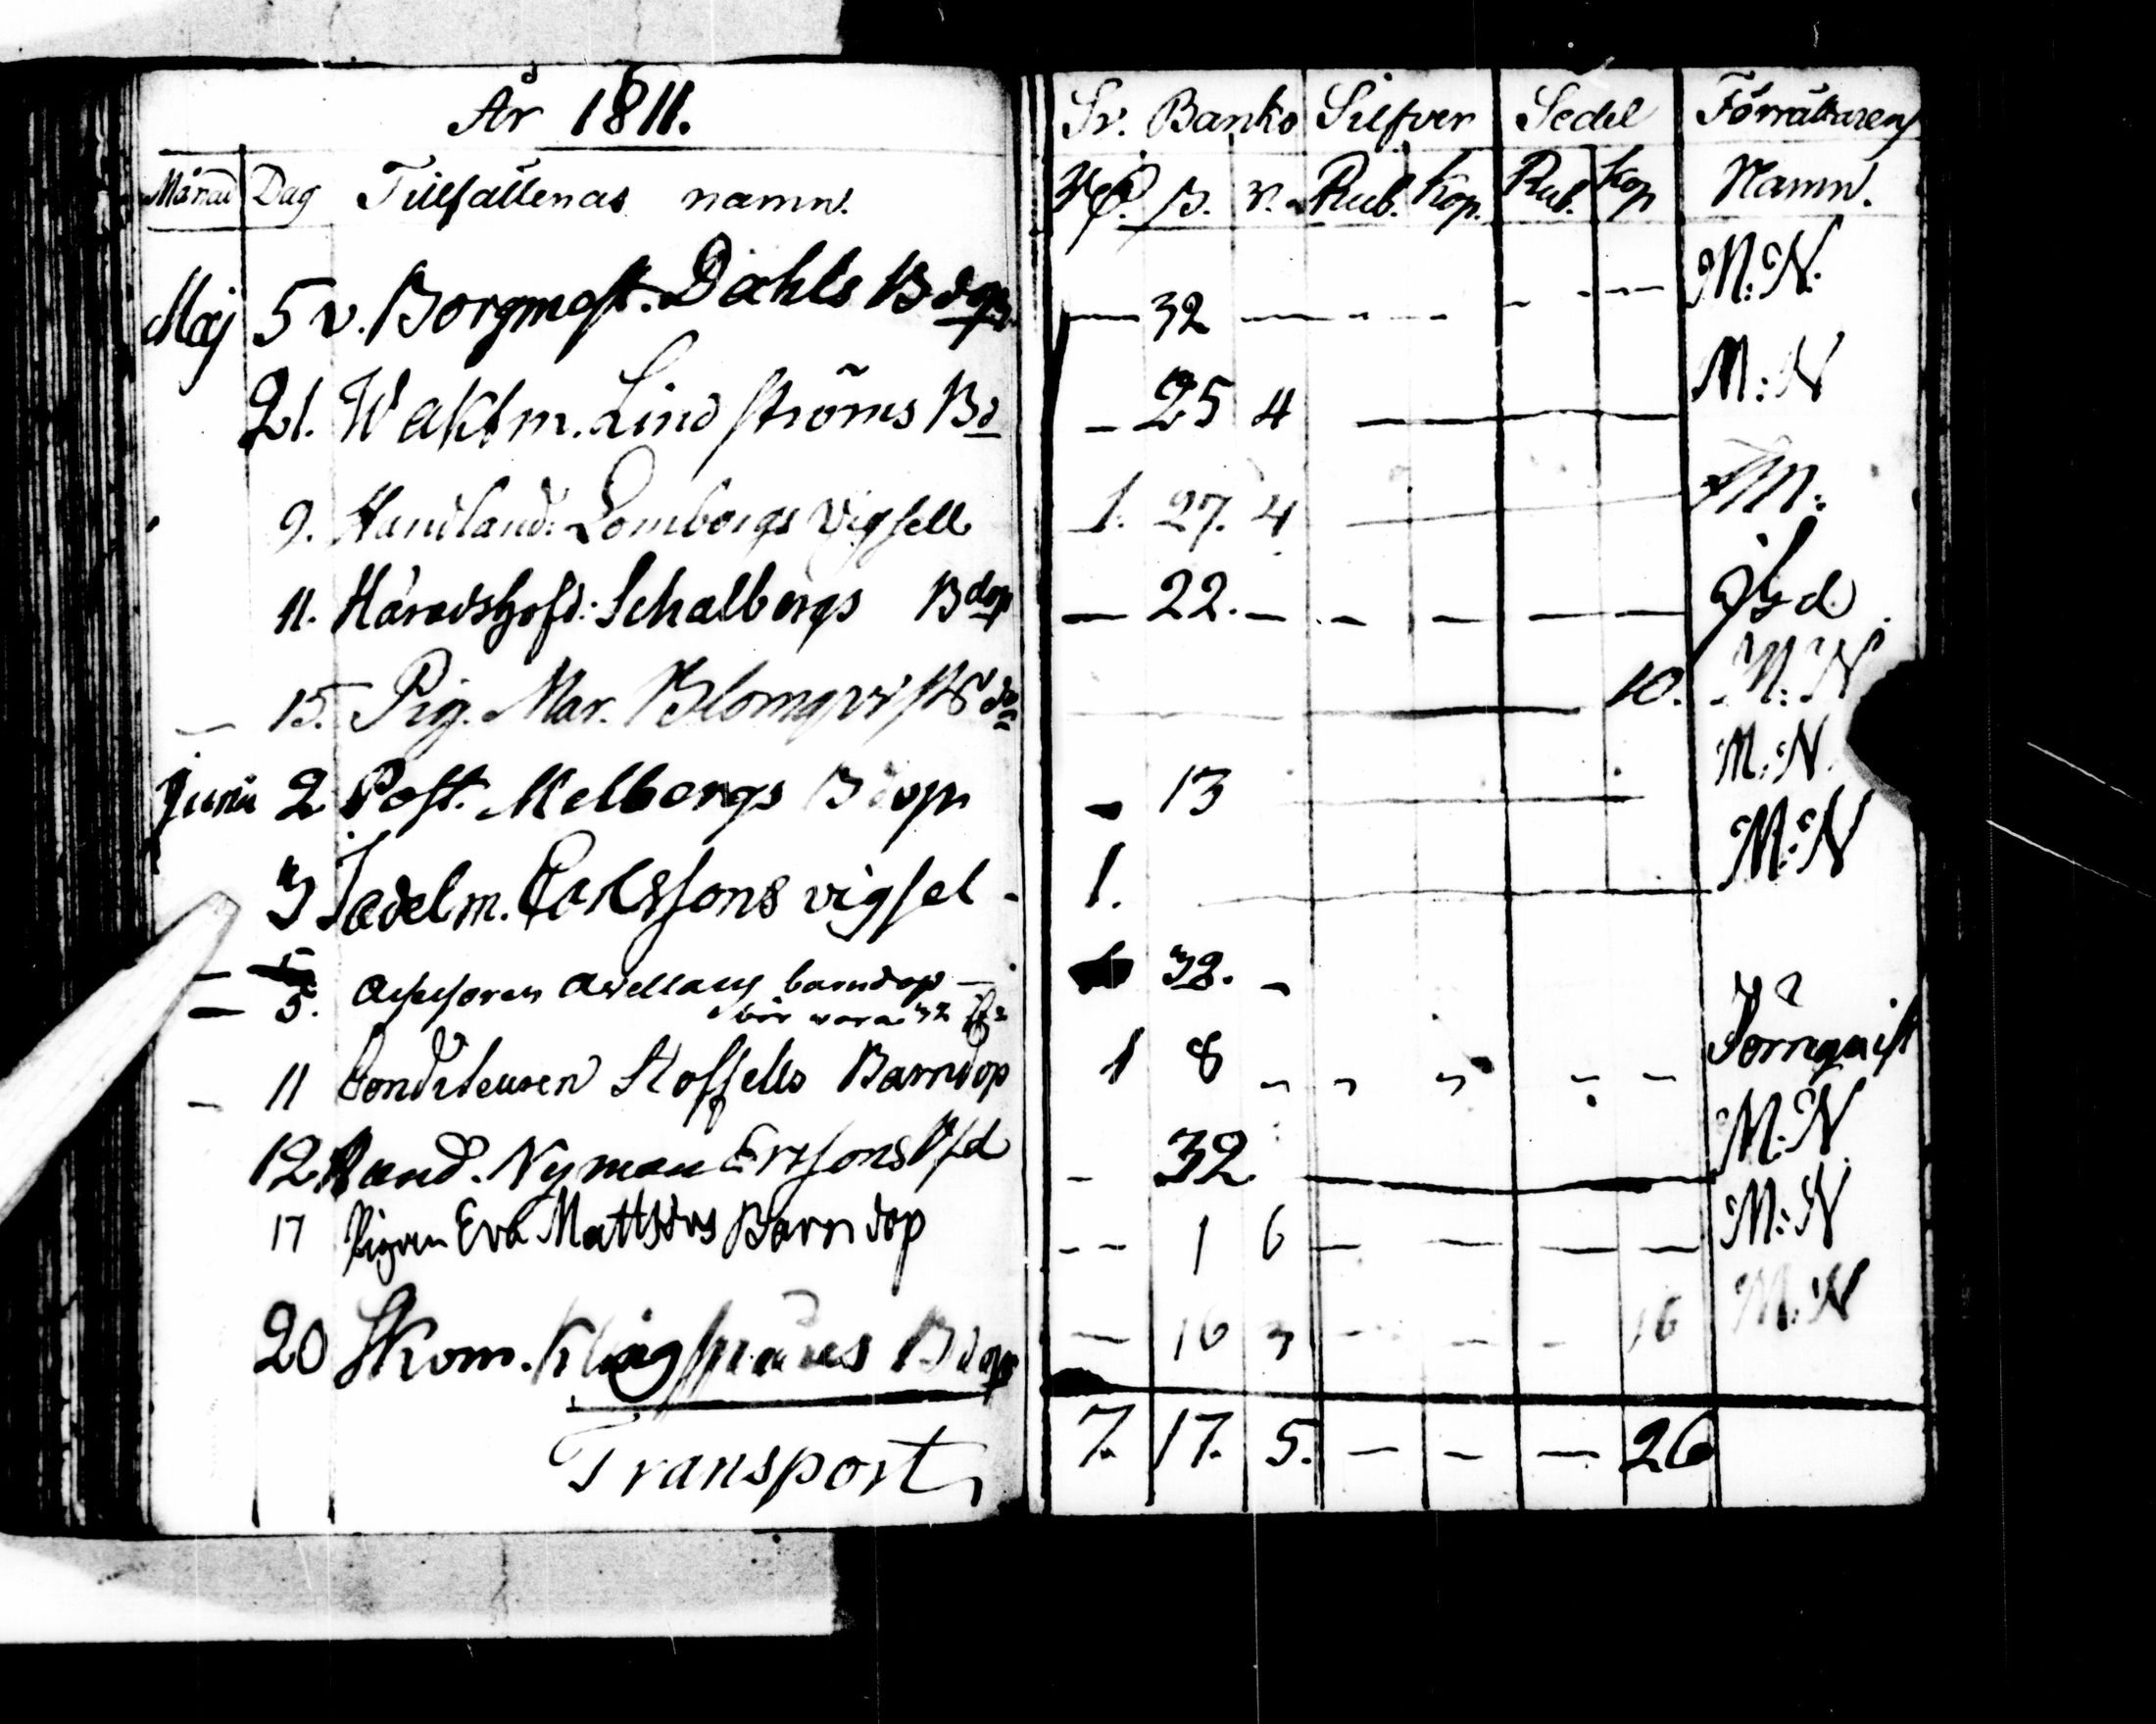 År 1811.
Sv. Banko Silfver Sedel Förrättarens
Månad Dag Tillfällenas namn.
Rd. ß. r. Rub. Kop. Rub. Kop Namn.
Maj 5 v. Borgmest. Dahls Bdop — 32 — - - - - - — M:N.
21. Waktm. Lindströms Bd - 25 4 — M:N
9. Handland. Lombergs Vigsell 1. 27. 4 —
11. Häradshöfd: Schalbergs Bdop — 22. — - — — —
15. Pig. Mar. Blomqvists — 10. M:N
Junii 2 Post. Melbergs Bdop - 13 — M:N.
3 Sadelm. Erikssons vigsel - 1. — M:N
5. Assessoren Avellans barndop — 32. -
bör vara 32
11 Conditeuren Stoffells Barndop 1 8 - - - - - Törnqvist
12 Hand. Nyman Erssons - 32 — M:N
17 Pigan Eva Mattsdrs Barndop - - 1 6 — — — — M:N
20 Skom. Klingspårs Bdop — 16 3 - - - 16 M:N
Transport 7. 17. 5. — - — 26